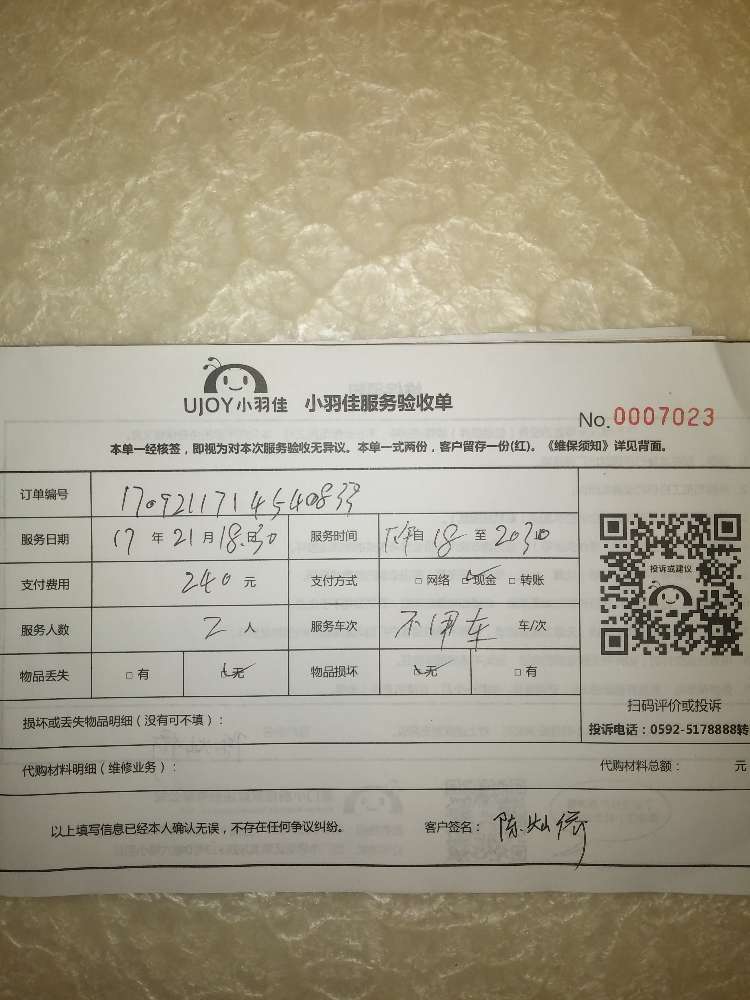 UJOY小羽佳 小羽佳服务验收单
No. 0007023
本单一经核签，即视为对本次服务验收无异议。本单一式两份，客户留存一份(红)。《维保须知》详见背面。
订单编号
服务日期 17 年 21 月 18 日 服务时间 自 18 至
支付费用 240 元 支付方式 □ 网络 □ 现金 □ 转账
服务人数 2 人 服务车次 不用车 车/次
物品丢失 □ 有 □ 无 物品损坏 □ 无 □ 有
投诉或建议
扫码评价或投诉
投诉电话：0592-5178888转
损坏或丢失物品明细（没有可不填）：
代购材料明细（维修业务）： 代购材料总额： 元
以上填写信息已经本人确认无误，不存在任何争议纠纷。 客户签名： 陈灿